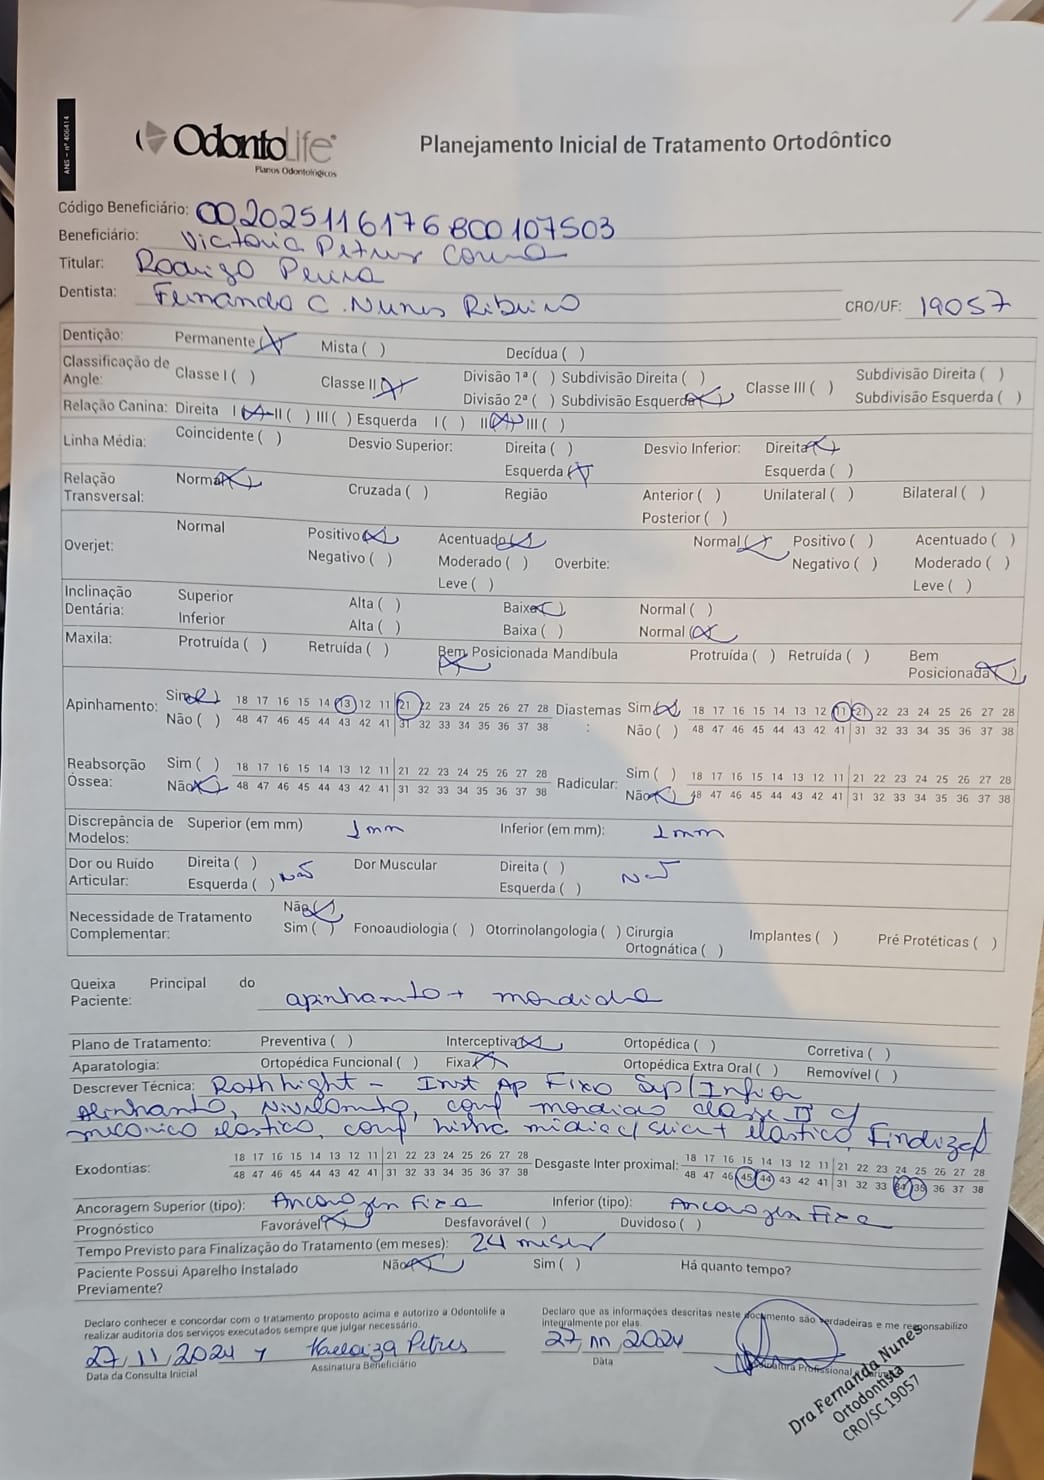 ANS - nº 406414
OdontoLife
Planos Odontológicos
Planejamento Inicial de Tratamento Ortodôntico
Código Beneficiário: 002025116176800107503
Beneficiário: Victoria Petrus
Titular: Rodrigo
Dentista: Fernanda C. Nunes Ribeiro CRO/UF: 19057
Dentição: Permanente (X) Mista ( ) Decídua ( )
Classificação de Angle: Classe I ( ) Classe II (X) Divisão 1ª ( ) Subdivisão Direita ( ) Classe III ( ) Subdivisão Direita ( )
Divisão 2ª ( ) Subdivisão Esquerda (X) Subdivisão Esquerda ( )
Relação Canina: Direita I (X) II ( ) III ( ) Esquerda I ( ) II (X) III ( )
Linha Média: Coincidente ( ) Desvio Superior: Direita ( ) Desvio Inferior: Direita (X)
Esquerda (X) Esquerda ( )
Relação Transversal: Normal (X) Cruzada ( ) Região Anterior ( ) Unilateral ( ) Bilateral ( )
Posterior ( )
Overjet: Normal Positivo (X) Acentuado (X) Normal (X) Positivo ( ) Acentuado ( )
Negativo ( ) Moderado ( ) Overbite: Negativo ( ) Moderado ( )
Leve ( ) Leve ( )
Inclinação Dentária: Superior Alta ( ) Baixa (X) Normal ( )
Inferior Alta ( ) Baixa ( ) Normal (X)
Maxila: Protruída ( ) Retruída ( ) Bem Posicionada (X) Mandíbula Protruída ( ) Retruída ( ) Bem Posicionada (X)
Apinhamento: Sim (X) 18 17 16 15 14 13 12 11 21 22 23 24 25 26 27 28 Diastemas: Sim (X) 18 17 16 15 14 13 12 11 21 22 23 24 25 26 27 28
Não ( ) 48 47 46 45 44 43 42 41 31 32 33 34 35 36 37 38 Não ( ) 48 47 46 45 44 43 42 41 31 32 33 34 35 36 37 38
Reabsorção Óssea: Sim ( ) 18 17 16 15 14 13 12 11 21 22 23 24 25 26 27 28 Radicular: Sim ( ) 18 17 16 15 14 13 12 11 21 22 23 24 25 26 27 28
Não (X) 48 47 46 45 44 43 42 41 31 32 33 34 35 36 37 38 Não (X) 48 47 46 45 44 43 42 41 31 32 33 34 35 36 37 38
Discrepância de Modelos: Superior (em mm) 1mm Inferior (em mm): 1mm
Dor ou Ruído Articular: Direita ( ) Não Dor Muscular Direita ( ) Não
Esquerda ( ) Esquerda ( )
Necessidade de Tratamento Complementar: Não (X)
Sim ( ) Fonoaudiologia ( ) Otorrinolangologia ( ) Cirurgia Ortognática ( ) Implantes ( ) Pré Protéticas ( )
Queixa Principal do Paciente: apinhamto + mordida
Plano de Tratamento: Preventiva ( ) Interceptiva (X) Ortopédica ( ) Corretiva ( )
Aparatologia: Ortopédica Funcional ( ) Fixa (X) Ortopédica Extra Oral ( ) Removível ( )
Descrever Técnica: Roth hight - Inst Ap Fixo Sup/Infior
Alinhanto, Nivelamto, mordida classe II c/
mecanica elastico, linha media c/ elastico
Exodontias: 18 17 16 15 14 13 12 11 21 22 23 24 25 26 27 28 Desgaste Inter proximal: 18 17 16 15 14 13 12 11 21 22 23 24 25 26 27 28
48 47 46 45 44 43 42 41 31 32 33 34 35 36 37 38 48 47 46 45 44 43 42 41 31 32 33 34 35 36 37 38
Ancoragem Superior (tipo): Ancoragem Fixa Inferior (tipo): Ancoragem Fixa
Prognóstico Favorável (X) Desfavorável ( ) Duvidoso ( )
Tempo Previsto para Finalização do Tratamento (em meses): 24 meses
Paciente Possui Aparelho Instalado Previamente? Não (X) Sim ( ) Há quanto tempo?
Declaro conhecer e concordar com o tratamento proposto acima e autorizo a Odontolife a realizar auditoria dos serviços executados sempre que julgar necessário.
Declaro que as informações descritas neste documento são verdadeiras e me responsabilizo integralmente por elas.
27/11/2024 Petres 27/11/2024
Data da Consulta Inicial Assinatura Beneficiário Data Assinatura Profissional
Dra Fernanda Nunes
Ortodontista
CRO/SC 19057